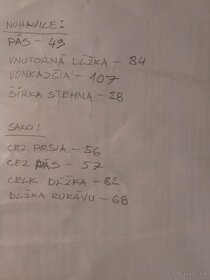 NOHAVICE:
PÁS - 49
VNÚTORNÁ DĹŽKA - 84
VONKAJŠIA - 107
ŠÍRKA STEHNA - 28
SAKO:
CEZ PRSIA - 56
CEZ PÁS - 57
CELK DĹŽKA - 82
DĹŽKA RUKÁVU - 68